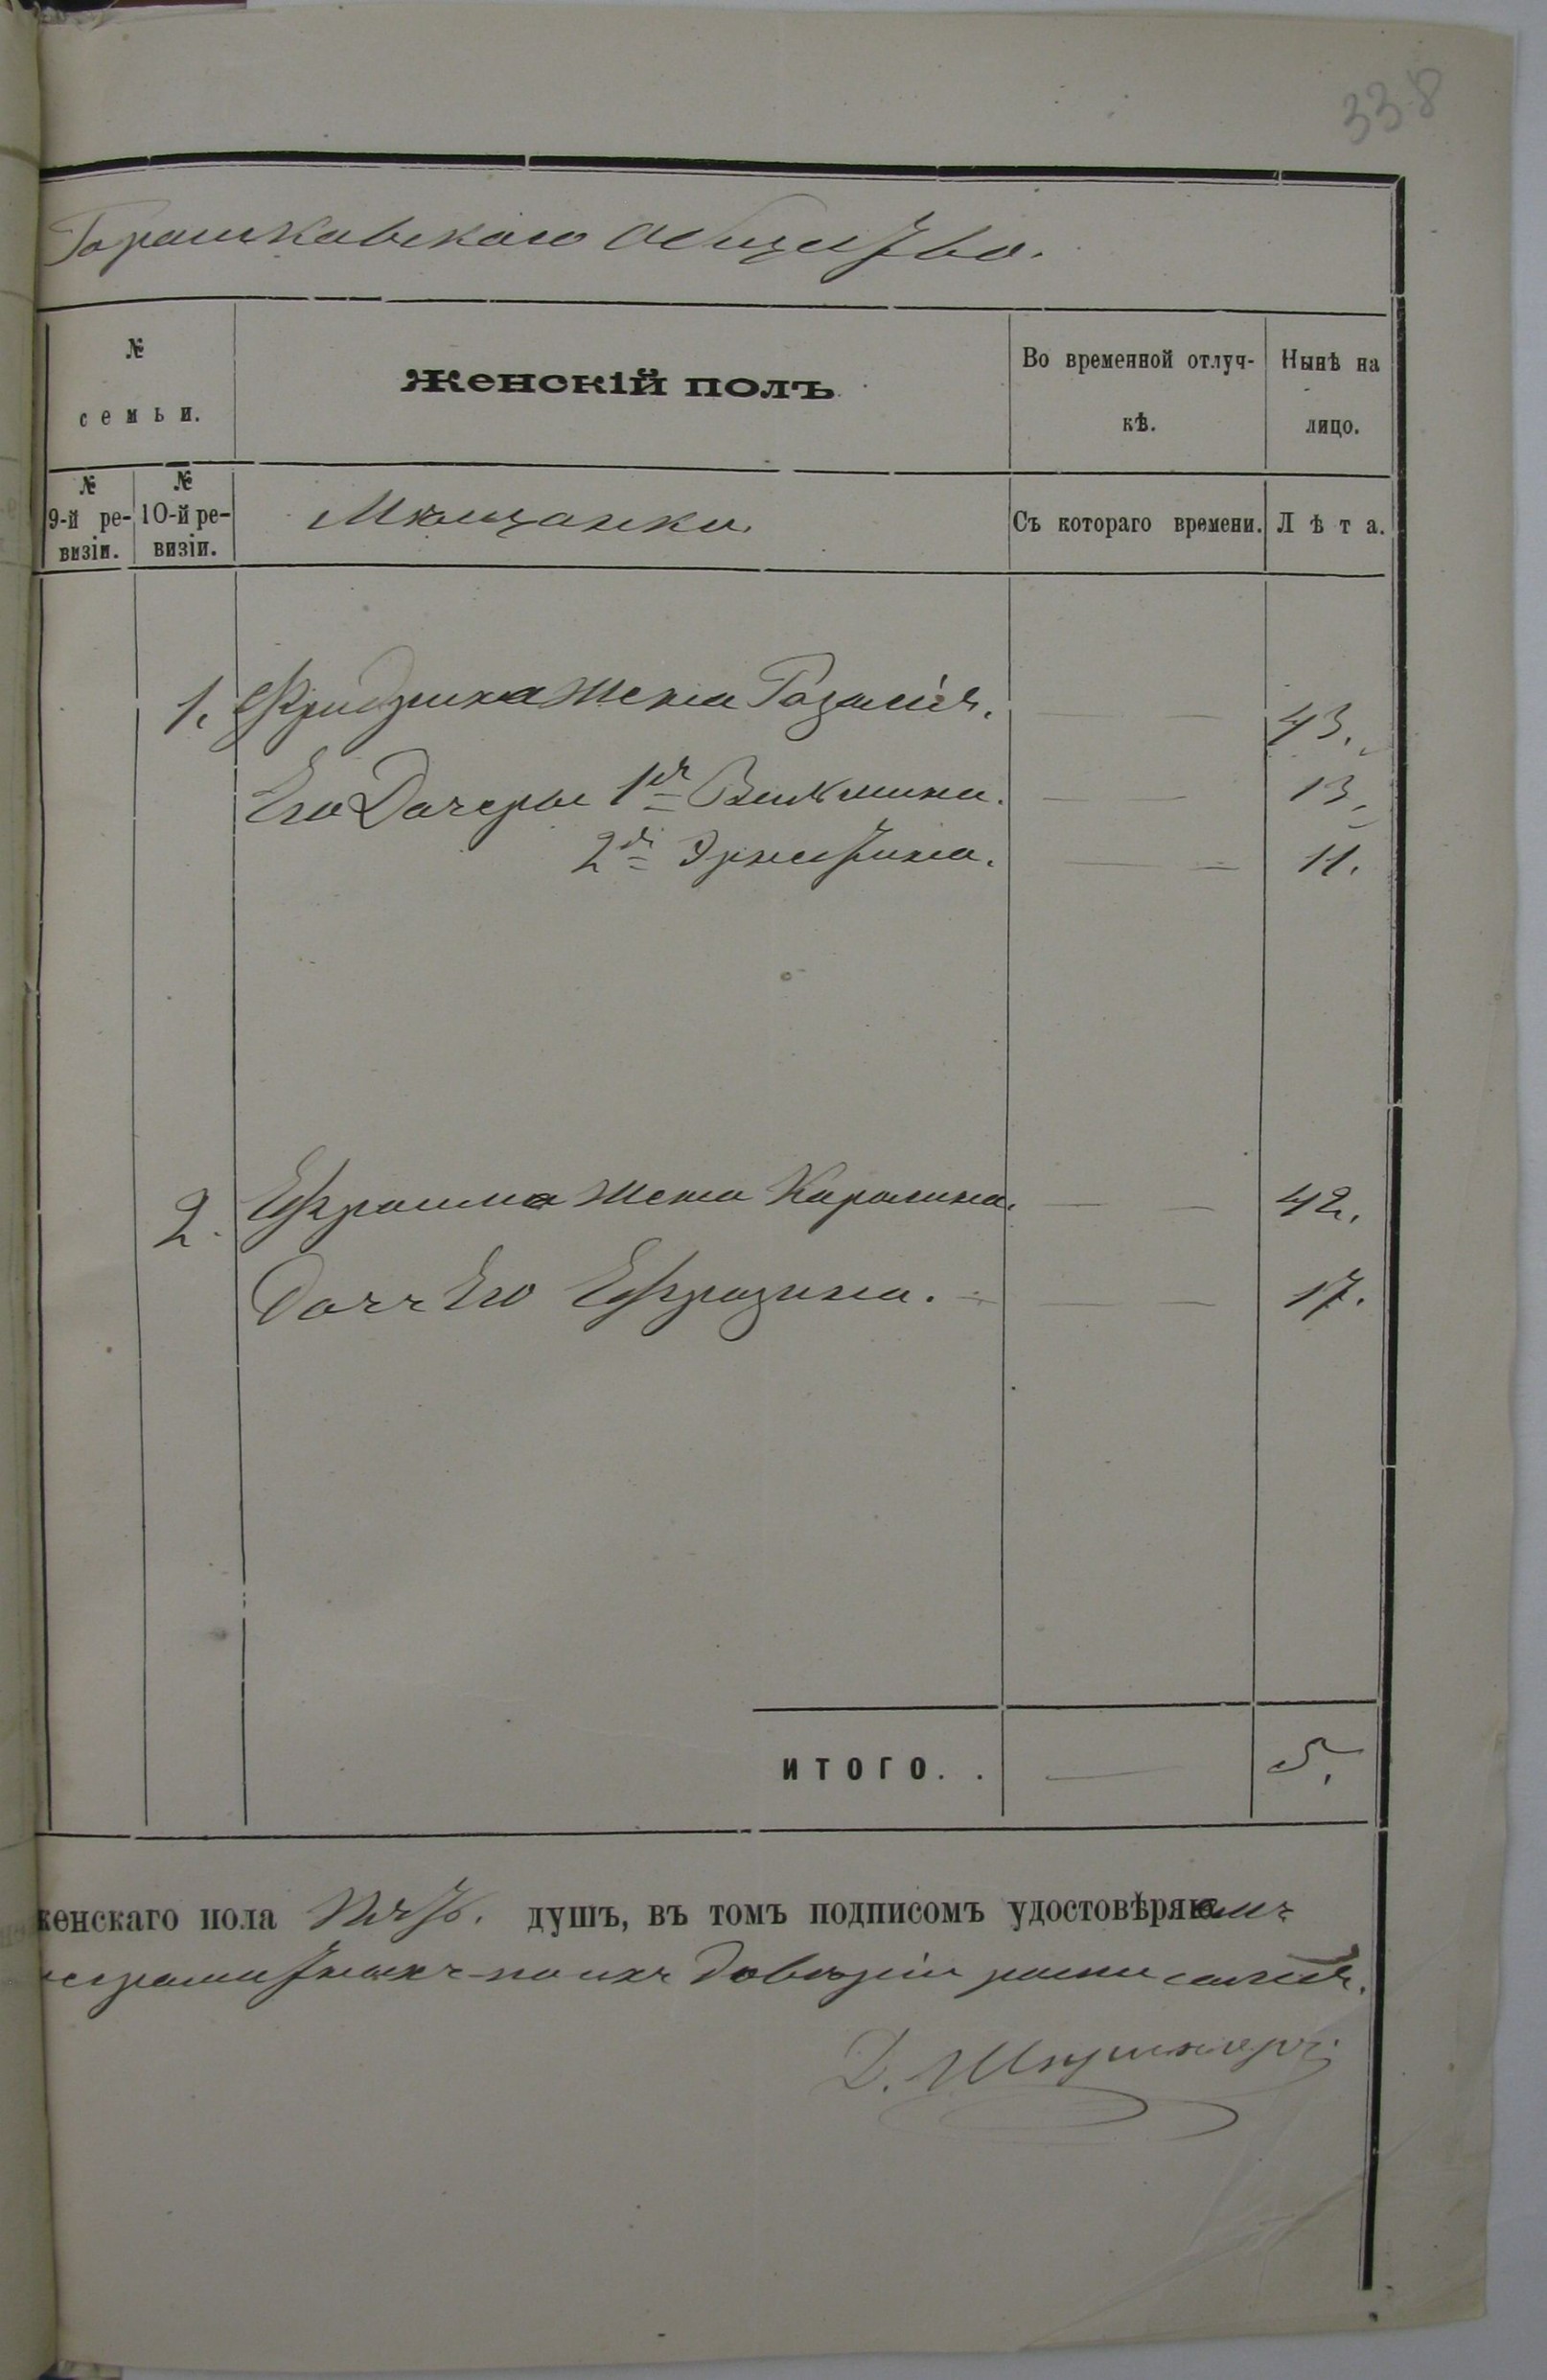 338
Горошковскаго общества.
№
семьи.
Женскій полъ
Во временной отлуч-
кѣ.
Нынѣ на
лицо.
№
9-й ре-
визіи.
№
10-й ре-
визіи.
Мѣщанки
Съ котораго времени.
Лѣта.
1. Фридриха жена Розалія. — — 43.
Его Дочеры 1я Вильгмина. — — 13.
2я Эрнестина. — — 11.
2. Ефроима жена Каролина. — — 42.
Дочь Его Ефрозина. — — 17.
ИТОГО. . — 5.
женскаго пола Пять. душъ, въ томъ подписомъ удостовѣряемъ
неграмотныхъ по ихъ довѣрію росписался.
Д.